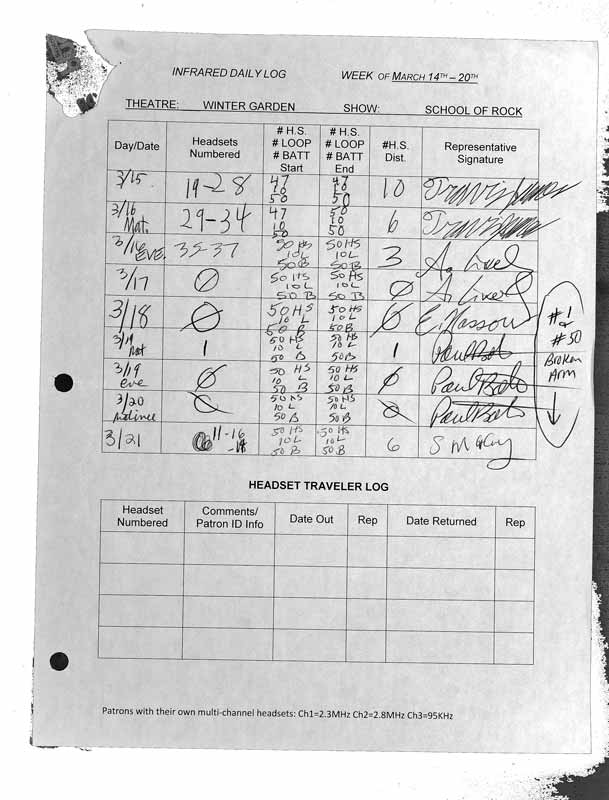 INFRARED DAILY LOG WEEK OF MARCH 14TH – 20TH
THEATRE: WINTER GARDEN SHOW: SCHOOL OF ROCK
Day/Date Headsets Numbered # H.S. # LOOP # BATT Start # H.S. # LOOP # BATT End #H.S. Dist. Representative Signature
3/15 19-28 47 10 50 47 10 50 10 Travis
3/16 Mat. 29-34 47 10 50 50 10 50 6 Travis
3/16 EVE. 35-37 50 HS 10 L 50 B 50 HS 10 L 50 B 3 A.
3/17 Ø 50 HS 10 L 50 B 50 HS 10 L 50 B Ø A.
3/18 Ø 50 HS 10 L 50 B 50 HS 10 L 50 B Ø E. Massou
3/19 Mat 1 50 HS 10 L 50 B 50 HS 10 L 50 B 1 Paul
3/19 eve Ø 50 HS 10 L 50 B 50 HS 10 L 50 B Ø Paul
3/20 Matinee Ø 50 HS 10 L 50 B 50 HS 10 L 50 B Ø Paul
3/21 11-16 50 HS 10 L 50 B 50 HS 10 L 50 B 6 S
#1
&
#50
Broken
Arm
HEADSET TRAVELER LOG
Headset Numbered Comments/ Patron ID Info Date Out Rep Date Returned Rep
Patrons with their own multi-channel headsets: Ch1=2.3MHz Ch2=2.8MHz Ch3=95KHz